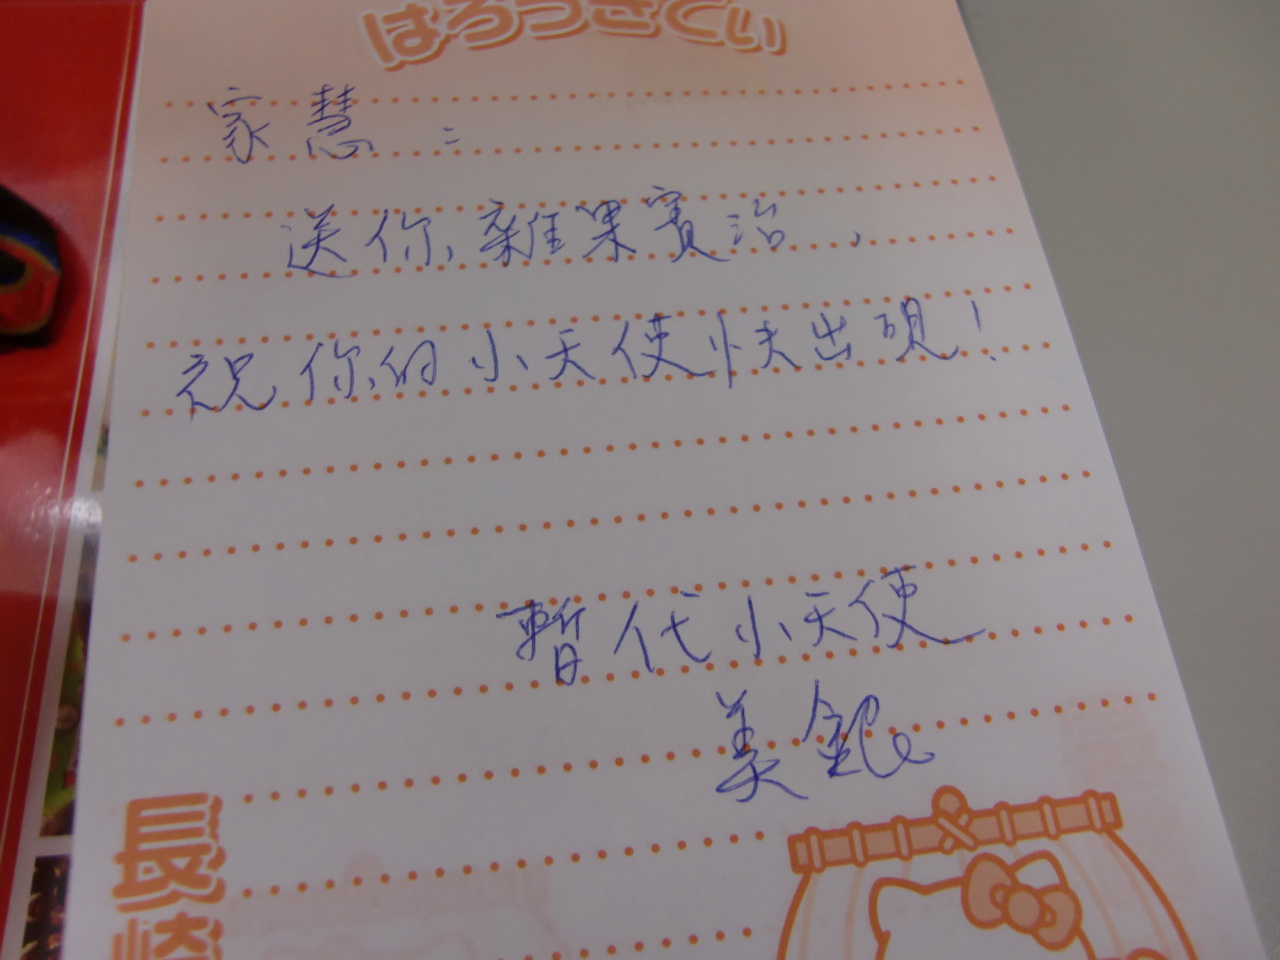 はろうきてぃ
家慧：
送你雜果賓治，
祝你的小天使快出現！
暫代小天使
美銀
長崎